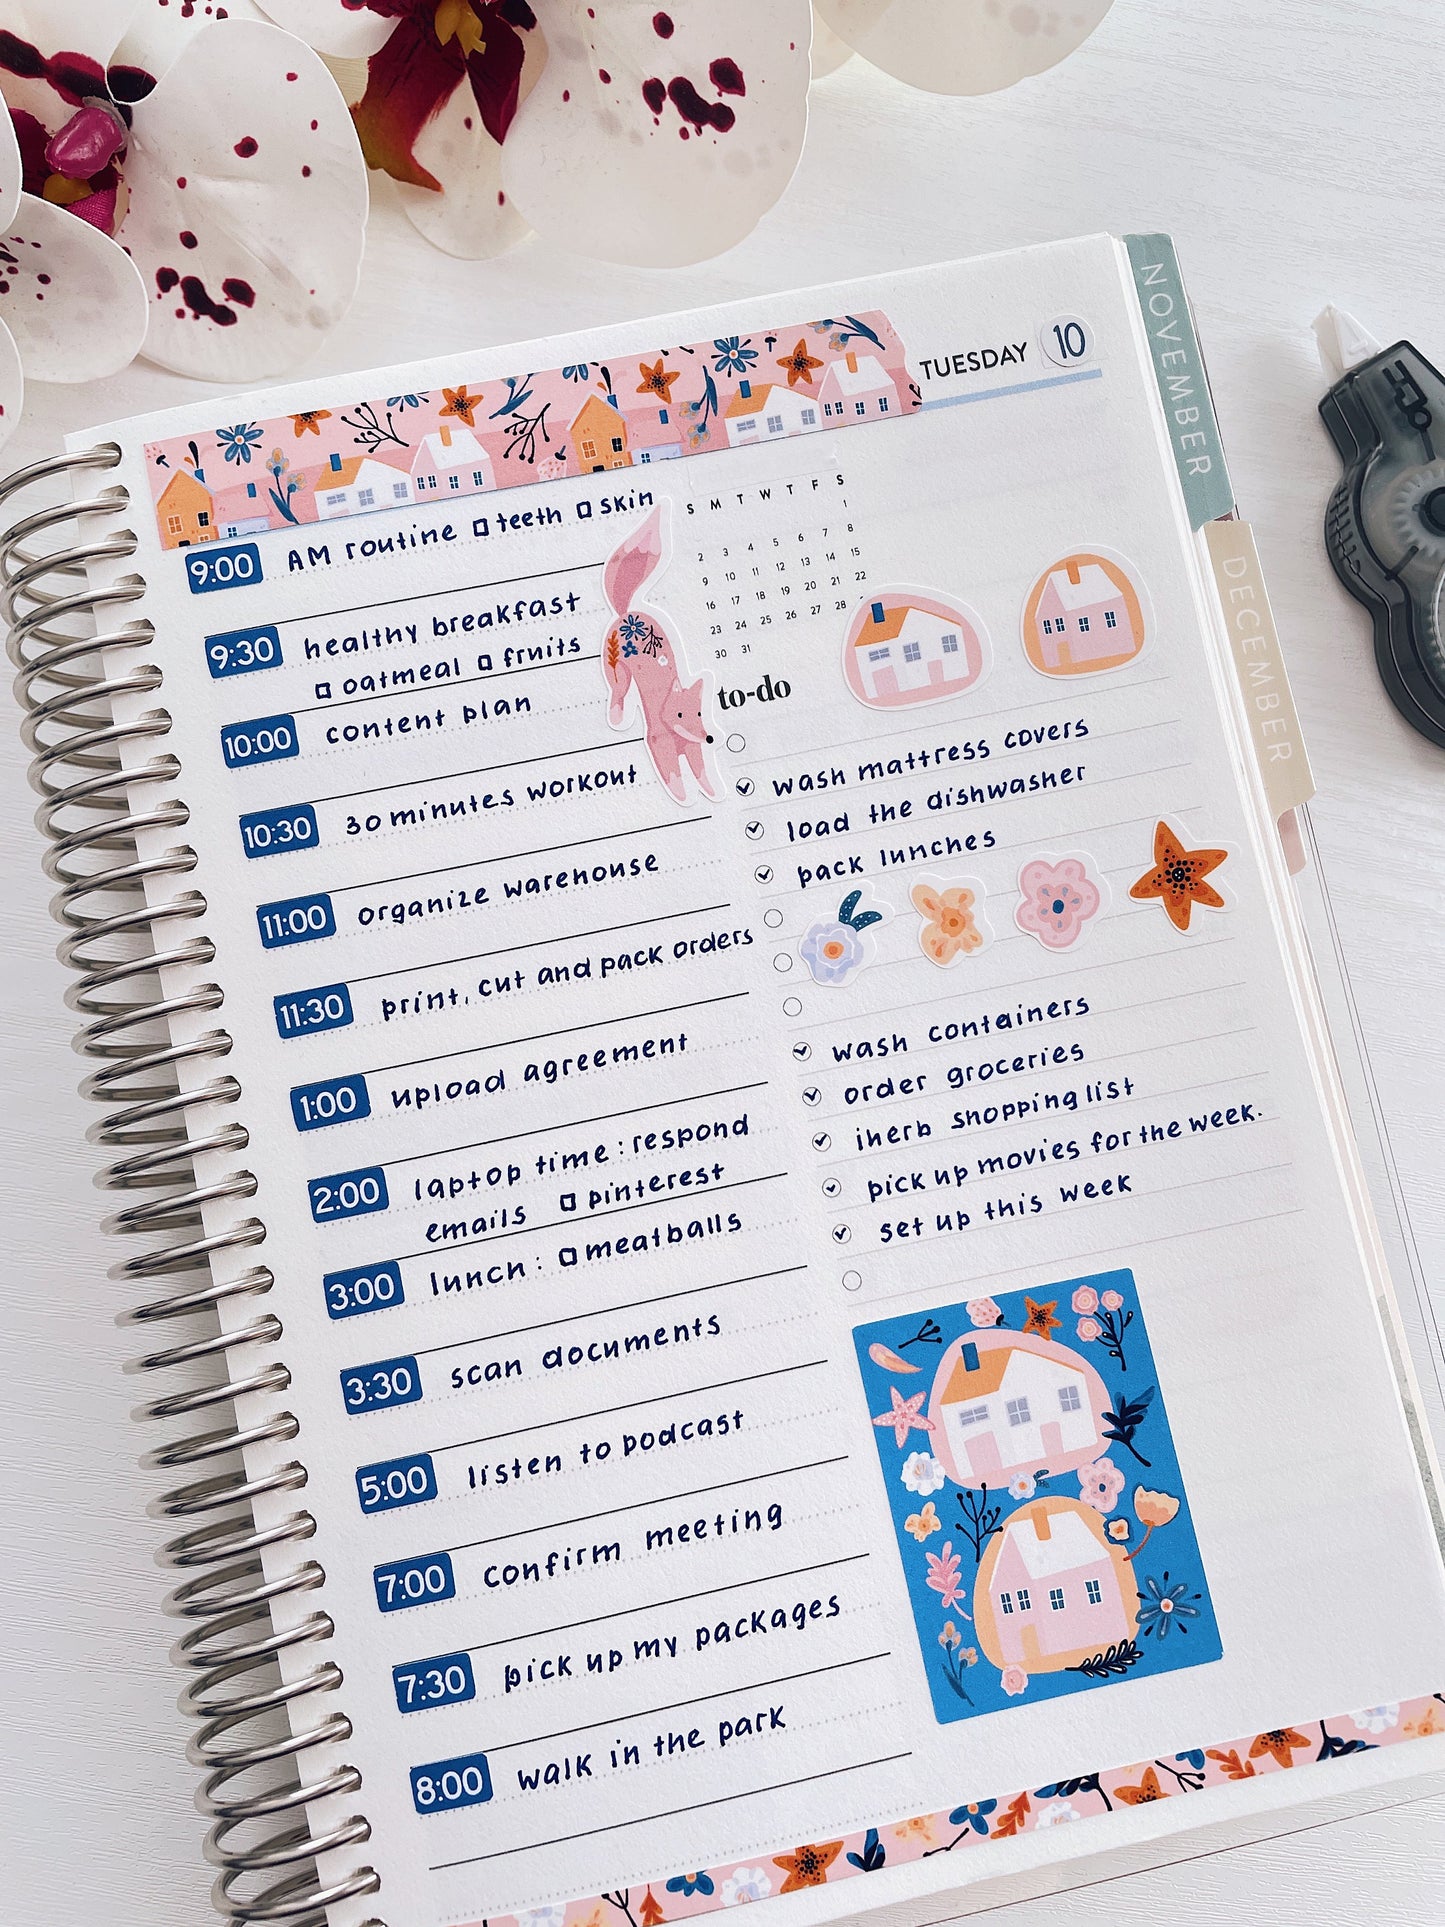 TUESDAY 10
NOVEMBER
DECEMBER
9:00 AM routine □ teeth □ skin
9:30 healthy breakfast
□ oatmeal □ fruits
10:00 content plan
10:30 30 minutes workout
11:00 organize warehouse
11:30 print, cut and pack orders
1:00 upload agreement
2:00 laptop time: respond
emails □ pinterest
3:00 lunch: □ meatballs
3:30 scan documents
5:00 listen to podcast
7:00 confirm meeting
7:30 pick up my packages
8:00 walk in the park
S M T W T F S
1
2 3 4 5 6 7 8
9 10 11 12 13 14 15
16 17 18 19 20 21 22
23 24 25 26 27 28
30 31
to-do
wash mattress covers
load the dishwasher
pack lunches
wash containers
order groceries
iherb shopping list
pick up movies for the week.
set up this week